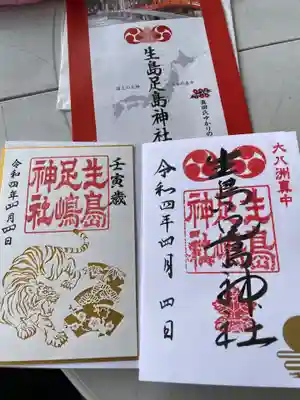 生島足島神社
真田氏ゆかりの
壬寅歳
生島
足嶋
神社
令和四年四月四日
大八洲真中
生島足嶋神社
生島
足嶋
神社
令和四年四月四日